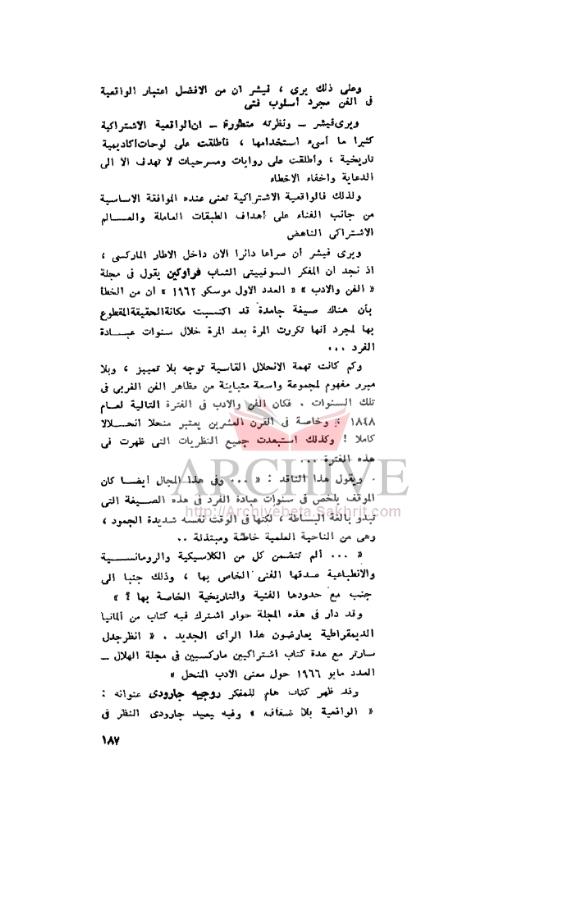 وعلى ذلك يرى ، فيشر ان من الافضل اعتبار الواقعية
فى الفن مجرد أسلوب فنى
ويرى فيشر ــ ونظرته متطورة ــ ان الواقعية الاشتراكية
كثيرا ما أسىء استخدامها ، فأطلقت على لوحات أكاديمية
تاريخية ، وأطلقت على روايات ومسرحيات لا تهدف الا الى
الدعاية واخفاء الاخطاء
ولذلك فالواقعية الاشتراكية تعنى عنده الموافقة الاساسية
من جانب الفناء على أهداف الطبقات العاملة والعــالم
الاشتراكى الناهض
ويرى فيشر أن صراعا دائرا الان داخل الاطار الماركسى ،
اذ نجد ان المفكر السوفييتى الشاب فراوكين يقول فى مجلة
« الفن والادب » « العدد الاول موسكو ١٩٦٢ » ان من الخطأ
بأن هناك صيغة جامدة قد اكتسبت مكانة الحقيقة المقطوع
بها لمجرد أنها تكررت المرة بعد المرة خلال سنوات عبــادة
الفرد ...
وكم كانت تهمة الانحلال القاسية توجه بلا تمييز ، وبلا
مبرر مفهوم لمجموعة واسعة متباينة من مظاهر الفن الغربى فى
تلك السنوات . فكان الفن والادب فى الفترة التالية لعــام
١٨٤٨ ؛ وخاصة فى القرن العشرين يعتبر منحلا انحــلالا
كاملا ! وكذلك استبعدت جميع النظريات التى ظهرت فى
هذه الفترة ...
ARCHIVE
. ويقول هذا الناقد : « ... وفى هذا المجال أيضا كان
الموقف يلخص فى سنوات عبادة الفرد فى هذه الصــيغة التى
تبدو بالغة البســاطة ، لكنها فى الوقت نفسه شديدة الجمود ،
http://Archivebeta.Sakhrit.com
وهى من الناحية العلمية خاطئة ومبتذلة ..
« ... ألم تتضمن كل من الكلاسيكية والرومانســية
والانطباعية صدقها الفنى الخاص بها ، وذلك جنبا الى
جنب مع حدودها الفنية والتاريخية الخاصة بها ؟ »
وقد دار فى هذه المجلة حوار اشترك فيه كتاب من ألمانيا
الديمقراطية يعارضون هذا الرأى الجديد . « انظر جدل
سارتر مع عدة كتاب اشتراكيين ماركسيين فى مجلة الهلال ــ
العدد مايو ١٩٦٦ حول معنى الادب المنحل »
وقد ظهر كتاب هام للمفكر روجيه جارودى عنوانه :
« الواقعية بلا ضفاف » وفيه يعيد جارودى النظر فى
١٨٧